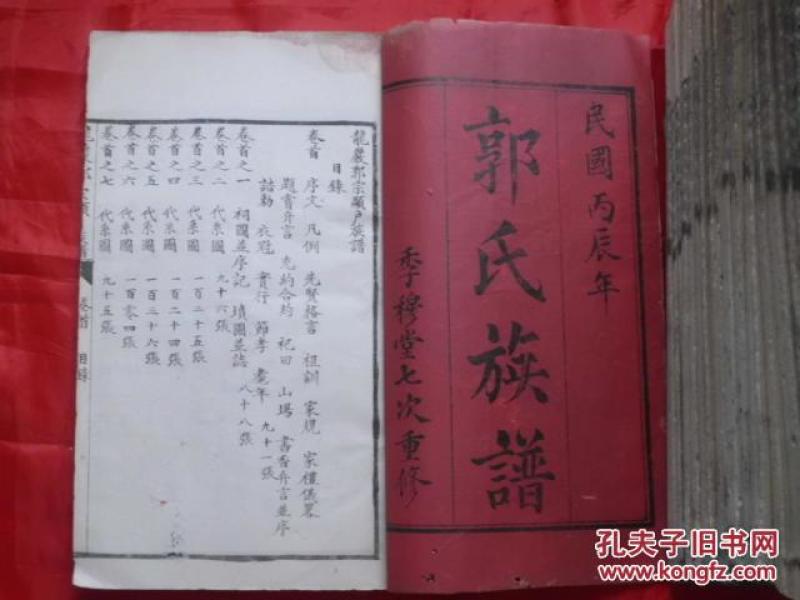 民國丙辰年
郭氏族譜
季穆堂七次重修
龍巖郭宗顯戶族譜
目錄
卷首 序文 凡例 先賢格言 祖訓 家規 家禮儀畧
題賣弁言 充約合約 祀田 山場 書香弁言並序
誥勅 衣冠 實行 節孝 耄年 九十一張
卷首之一 祠圖並序記 墳圖並誌 八十八張
卷首之二 代系圖 九十六張
卷首之三 代系圖 一百二十五張
卷首之四 代系圖 一百二十四張
卷首之五 代系圖 一百三十六張
卷首之六 代系圖 一百零四張
卷首之七 代系圖 九十五張
卷首 目錄
孔夫子旧书网
www.kongfz.com